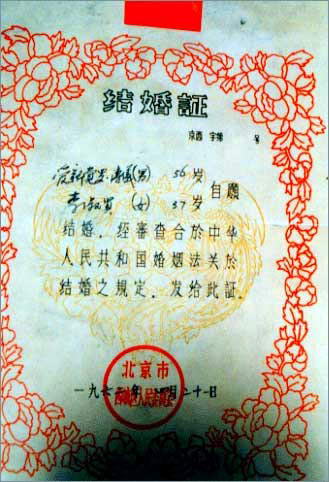 结婚証
京西 字第 号
爱新觉罗·溥儀(男) 56岁
李淑贤 (女) 37岁 自願
结婚，经審查合於中华
人民共和国婚姻法关於
结婚之規定，发给此証。
北京市
人民委員会
一九六二年 月二十一日